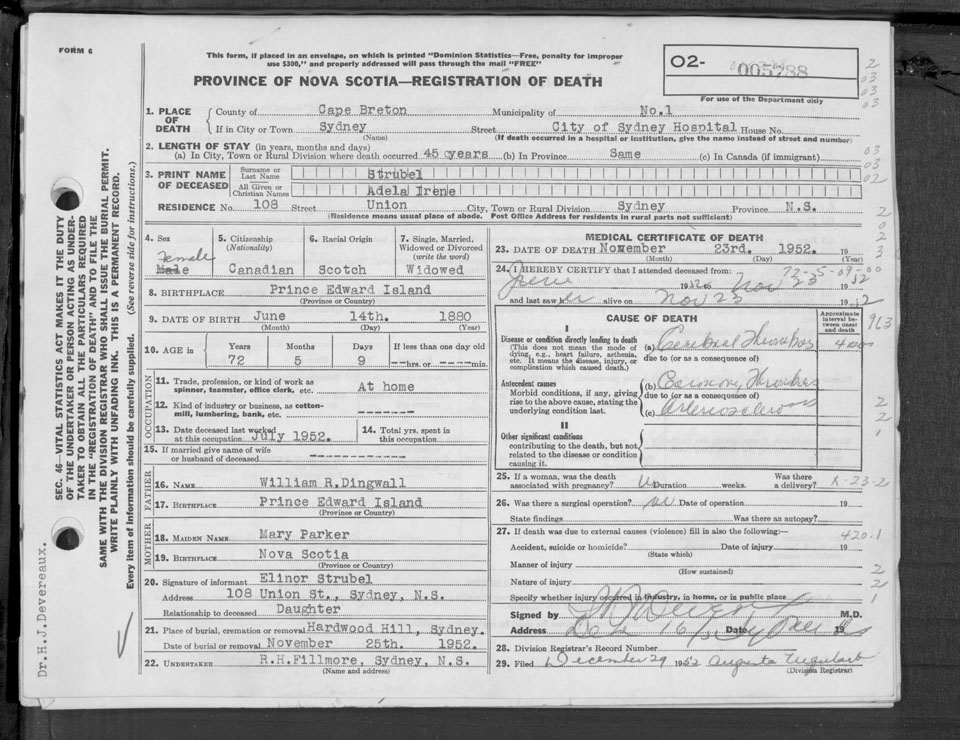 FORM 6
This form, if placed in an envelope, on which is printed "Dominion Statistics—Free, penalty for improper
use $300," and properly addressed will pass through the mail "FREE"
PROVINCE OF NOVA SCOTIA—REGISTRATION OF DEATH
O2-
005788
For use of the Department only
1. PLACE OF DEATH
County of Cape Breton Municipality of No.1
If in City or Town Sydney Street City of Sydney Hospital House No.
(Name) (If death occurred in a hospital or institution, give the name instead of street and number)
2. LENGTH OF STAY (in years, months and days)
(a) In City, Town or Rural Division where death occurred 45 years (b) In Province Same (c) In Canada (if immigrant)
3. PRINT NAME OF DECEASED
Surname or Last Name Strubel
All Given or Christian Names Adela Irene
RESIDENCE No. 108 Street Union City, Town or Rural Division Sydney Province N.S.
(Residence means usual place of abode. Post Office Address for residents in rural parts not sufficient)
4. Sex
Female
Male
5. Citizenship
(Nationality)
Canadian
6. Racial Origin
Scotch
7. Single, Married, Widowed or Divorced
(write the word)
Widowed
8. BIRTHPLACE Prince Edward Island
(Province or Country)
9. DATE OF BIRTH June 14th. 1880
(Month) (Day) (Year)
10. AGE in
Years Months Days If less than one day old
72 5 9 --hrs. or --min.
OCCUPATION
11. Trade, profession, or kind of work as
spinner, teamster, office clerk, etc. At home
12. Kind of industry or business, as cotton-
mill, lumbering, bank, etc. -------
13. Date deceased last worked
at this occupation July 1952.
14. Total yrs. spent in
this occupation
15. If married give name of wife
or husband of deceased ------------
FATHER
16. NAME William R.Dingwall
17. BIRTHPLACE Prince Edward Island
(Province or Country)
MOTHER
18. MAIDEN NAME Mary Parker
19. BIRTHPLACE Nova Scotia
(Province or Country)
20. Signature of informant Elinor Strubel
Address 108 Union St., Sydney, N.S.
Relationship to deceased Daughter
21. Place of burial, cremation or removal Hardwood Hill, Sydney.
Date of burial or removal November 25th. 1952.
22. UNDERTAKER R.H.Fillmore, Sydney, N.S.
(Name and address)
MEDICAL CERTIFICATE OF DEATH
23. DATE OF DEATH November 23rd. 1952. 19
(Month) (Day) (Year)
72-5-09-00
24. I HEREBY CERTIFY that I attended deceased from:
June 1952 to Nov 23 52
and last saw her alive on Nov 23 1952
CAUSE OF DEATH
Approximate interval between onset and death
963
I
Disease or condition directly leading to death
(This does not mean the mode of
dying, e.g., heart failure, asthenia,
etc. It means the disease, injury, or
complication which caused death.)
(a) Cerebral Thrombosis
due to (or as a consequence of)
Antecedent causes
Morbid conditions, if any, giving
rise to the above cause, stating the
underlying condition last.
(b) Coronary Thrombosis
due to (or as a consequence of)
(c) Arteriosclerosis
II
Other significant conditions
contributing to the death, but not
related to the disease or condition
causing it.
25. If a woman, was the death
associated with pregnancy? No duration weeks. Was there a delivery?
X-23-2
26. Was there a surgical operation? no Date of operation 19
State findings Was there an autopsy?
27. If death was due to external causes (violence) fill in also the following:—
420.1
Accident, suicide or homicide? Date of injury 19
(State which)
Manner of injury
(How sustained)
Nature of injury
Specify whether injury occurred in industry, in home, or in public place
Signed by M.D.
Address Dec 16/52 Date 19
28. Division Registrar's Record Number
29. Filed December 29 1952 Augusta
(Division Registrar)
SEC. 46—VITAL STATISTICS ACT MAKES IT THE DUTY
OF THE UNDERTAKER OR PERSON ACTING AS UNDER-
TAKER TO OBTAIN ALL THE PARTICULARS REQUIRED
IN THE "REGISTRATION OF DEATH" AND TO FILE THE
SAME WITH THE DIVISION REGISTRAR WHO SHALL ISSUE THE BURIAL PERMIT.
WRITE PLAINLY WITH UNFADING INK. THIS IS A PERMANENT RECORD.
Every item of Information should be carefully supplied. (See reverse side for instructions.)
Dr.H.J.Devereaux.